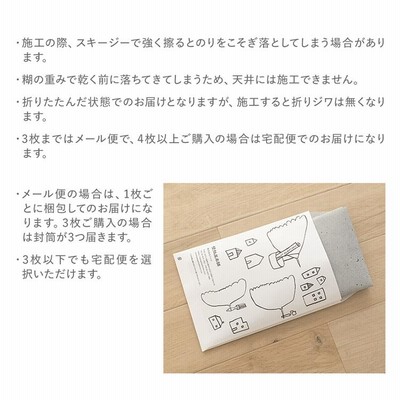 ・施工の際、スキージーで強く擦るとのりをこそぎ落としてしまう場合があり
ます。
・糊の重みで乾く前に落ちてきてしまうため、天井には施工できません。
・折りたたんだ状態でのお届けとなりますが、施工すると折りジワは無くなり
ます。
・3枚まではメール便で、4枚以上ご購入の場合は宅配便でのお届けになり
ます。
・メール便の場合は、1枚ご
とに梱包してのお届けにな
ります。3枚ご購入の場合
は封筒が3つ届きます。
・3枚以下でも宅配便を選
択いただけます。